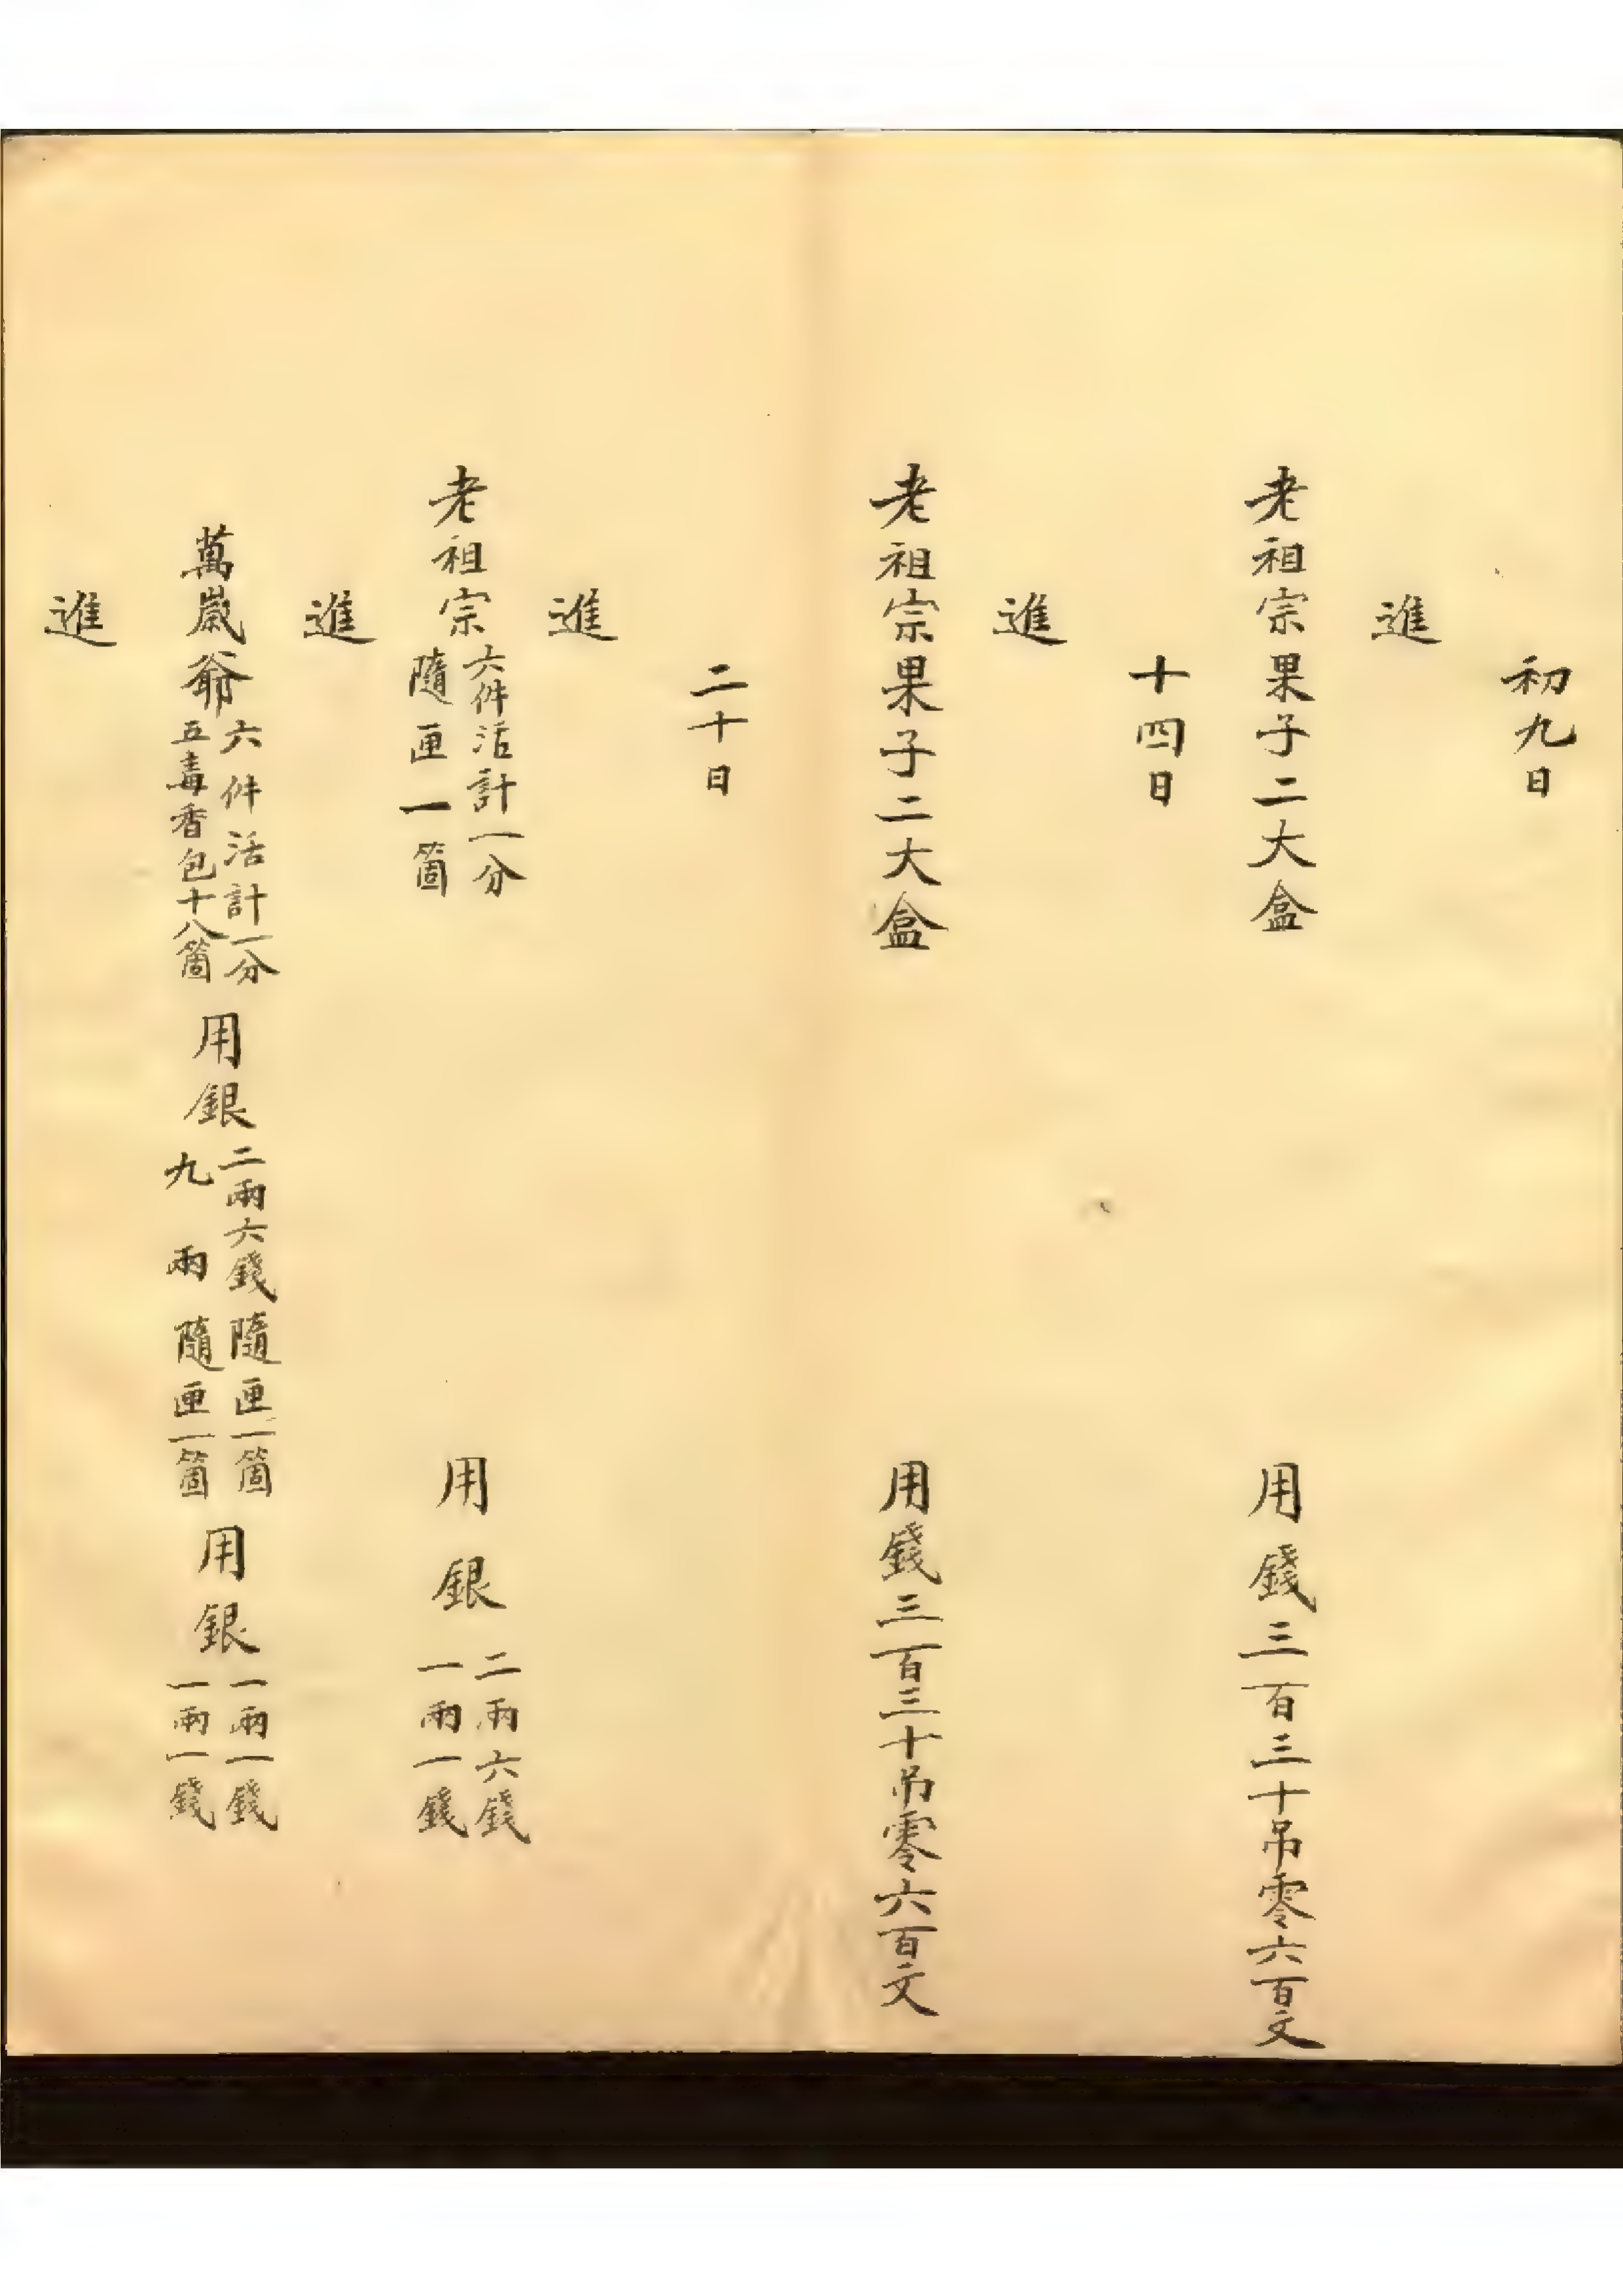 初九日
進
老祖宗果子二大盒 用錢三百三十吊零六百文
十四日
進
老祖宗果子二大盒 用錢三百三十吊零六百文
二十日
進
老祖宗 六件活計一分 隨匣一箇 用銀 二兩六錢 一兩一錢
進
萬歲爺 六件活計一分 五毒香包十八箇 用銀 二兩六錢隨匣一箇 九兩隨匣一箇 用銀 一兩一錢 一兩一錢
進